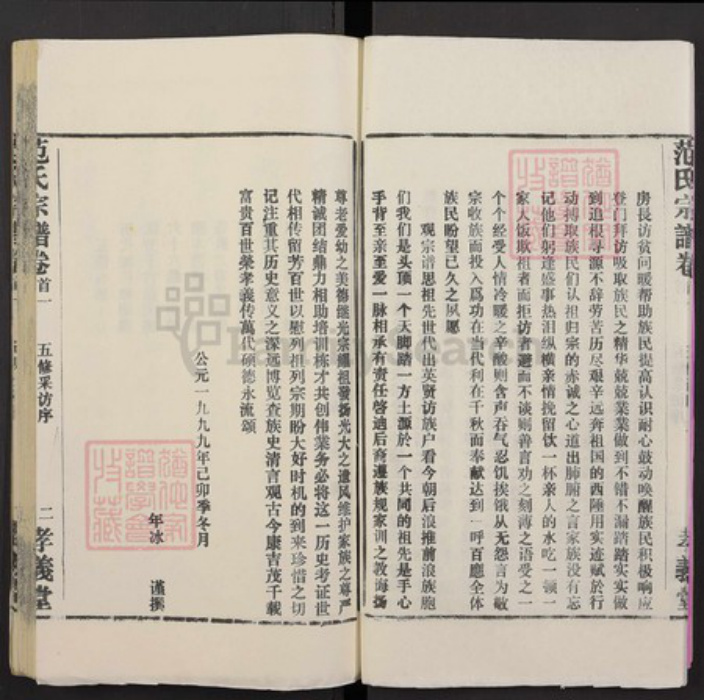 范氏宗譜卷
房長访贫问暖帮助族民提高认识耐心鼓动唤醒族民积极响应
登门拜访吸取族民之精华兢兢業業做到不错不漏踏踏实实做
到追根寻源不辞劳苦历尽艰辛远奔祖国的西陲用实迹赋於行
动搏取族民们认祖归宗的赤诚之心道出肺腑之言家族没有忘
记他们躬逢盛事热泪纵横亲情挽留饮一杯亲人的水吃一顿一
家人饭欺祖者而拒访者避而不谈则善言劝之刻薄之语受之一
个个经受人情冷暖之辛酸则含声吞气忍饥挨饿从无怨言为敬
宗收族而投入爲功在当代利在千秋而奉献达到一呼百應全体
族民盼望已久之夙愿
观宗谱思祖先世代出英贤访族户看今朝后浪推前浪族胞
们我们是头顶一个天脚踏一方土源於一个共同的祖先是手心
手背至亲至爱一脉相承有责任啓迪后裔遵族规家训之教诲扬
孝義堂
尊老爱幼之美德继光宗耀祖發扬光大之遺风维护家族之尊严
精诚团结鼎力相助培训栋才共创伟業务必将这一历史考证世
代相传留芳百世以慰列祖列宗期盼大好时机的到来珍惜之切
记注重其历史意义之深远博览查族史清言观古今康吉茂千载
富贵百世榮孝義传萬代碩德永流頌
公元一九九九年己卯季冬月
年冰 谨撰
范氏宗谱卷首一 五修采访序 二 孝義堂